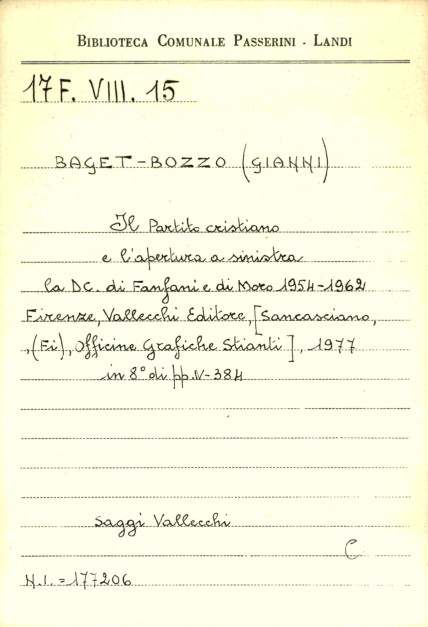 BIBLIOTECA COMUNALE PASSERINI - LANDI
17 F. VIII. 15
BAGET-BOZZO (GIANNI)
Il Partito cristiano
e l'apertura a sinistra
la DC. di Fanfani e di Moro 1954-1962
Firenze, Vallecchi Editore, [Sancasciano,
,(Fi), Officine Grafiche Stianti], 1977
in 8° di pp. IV-384
Saggi Vallecchi
C
N.I. = 177206